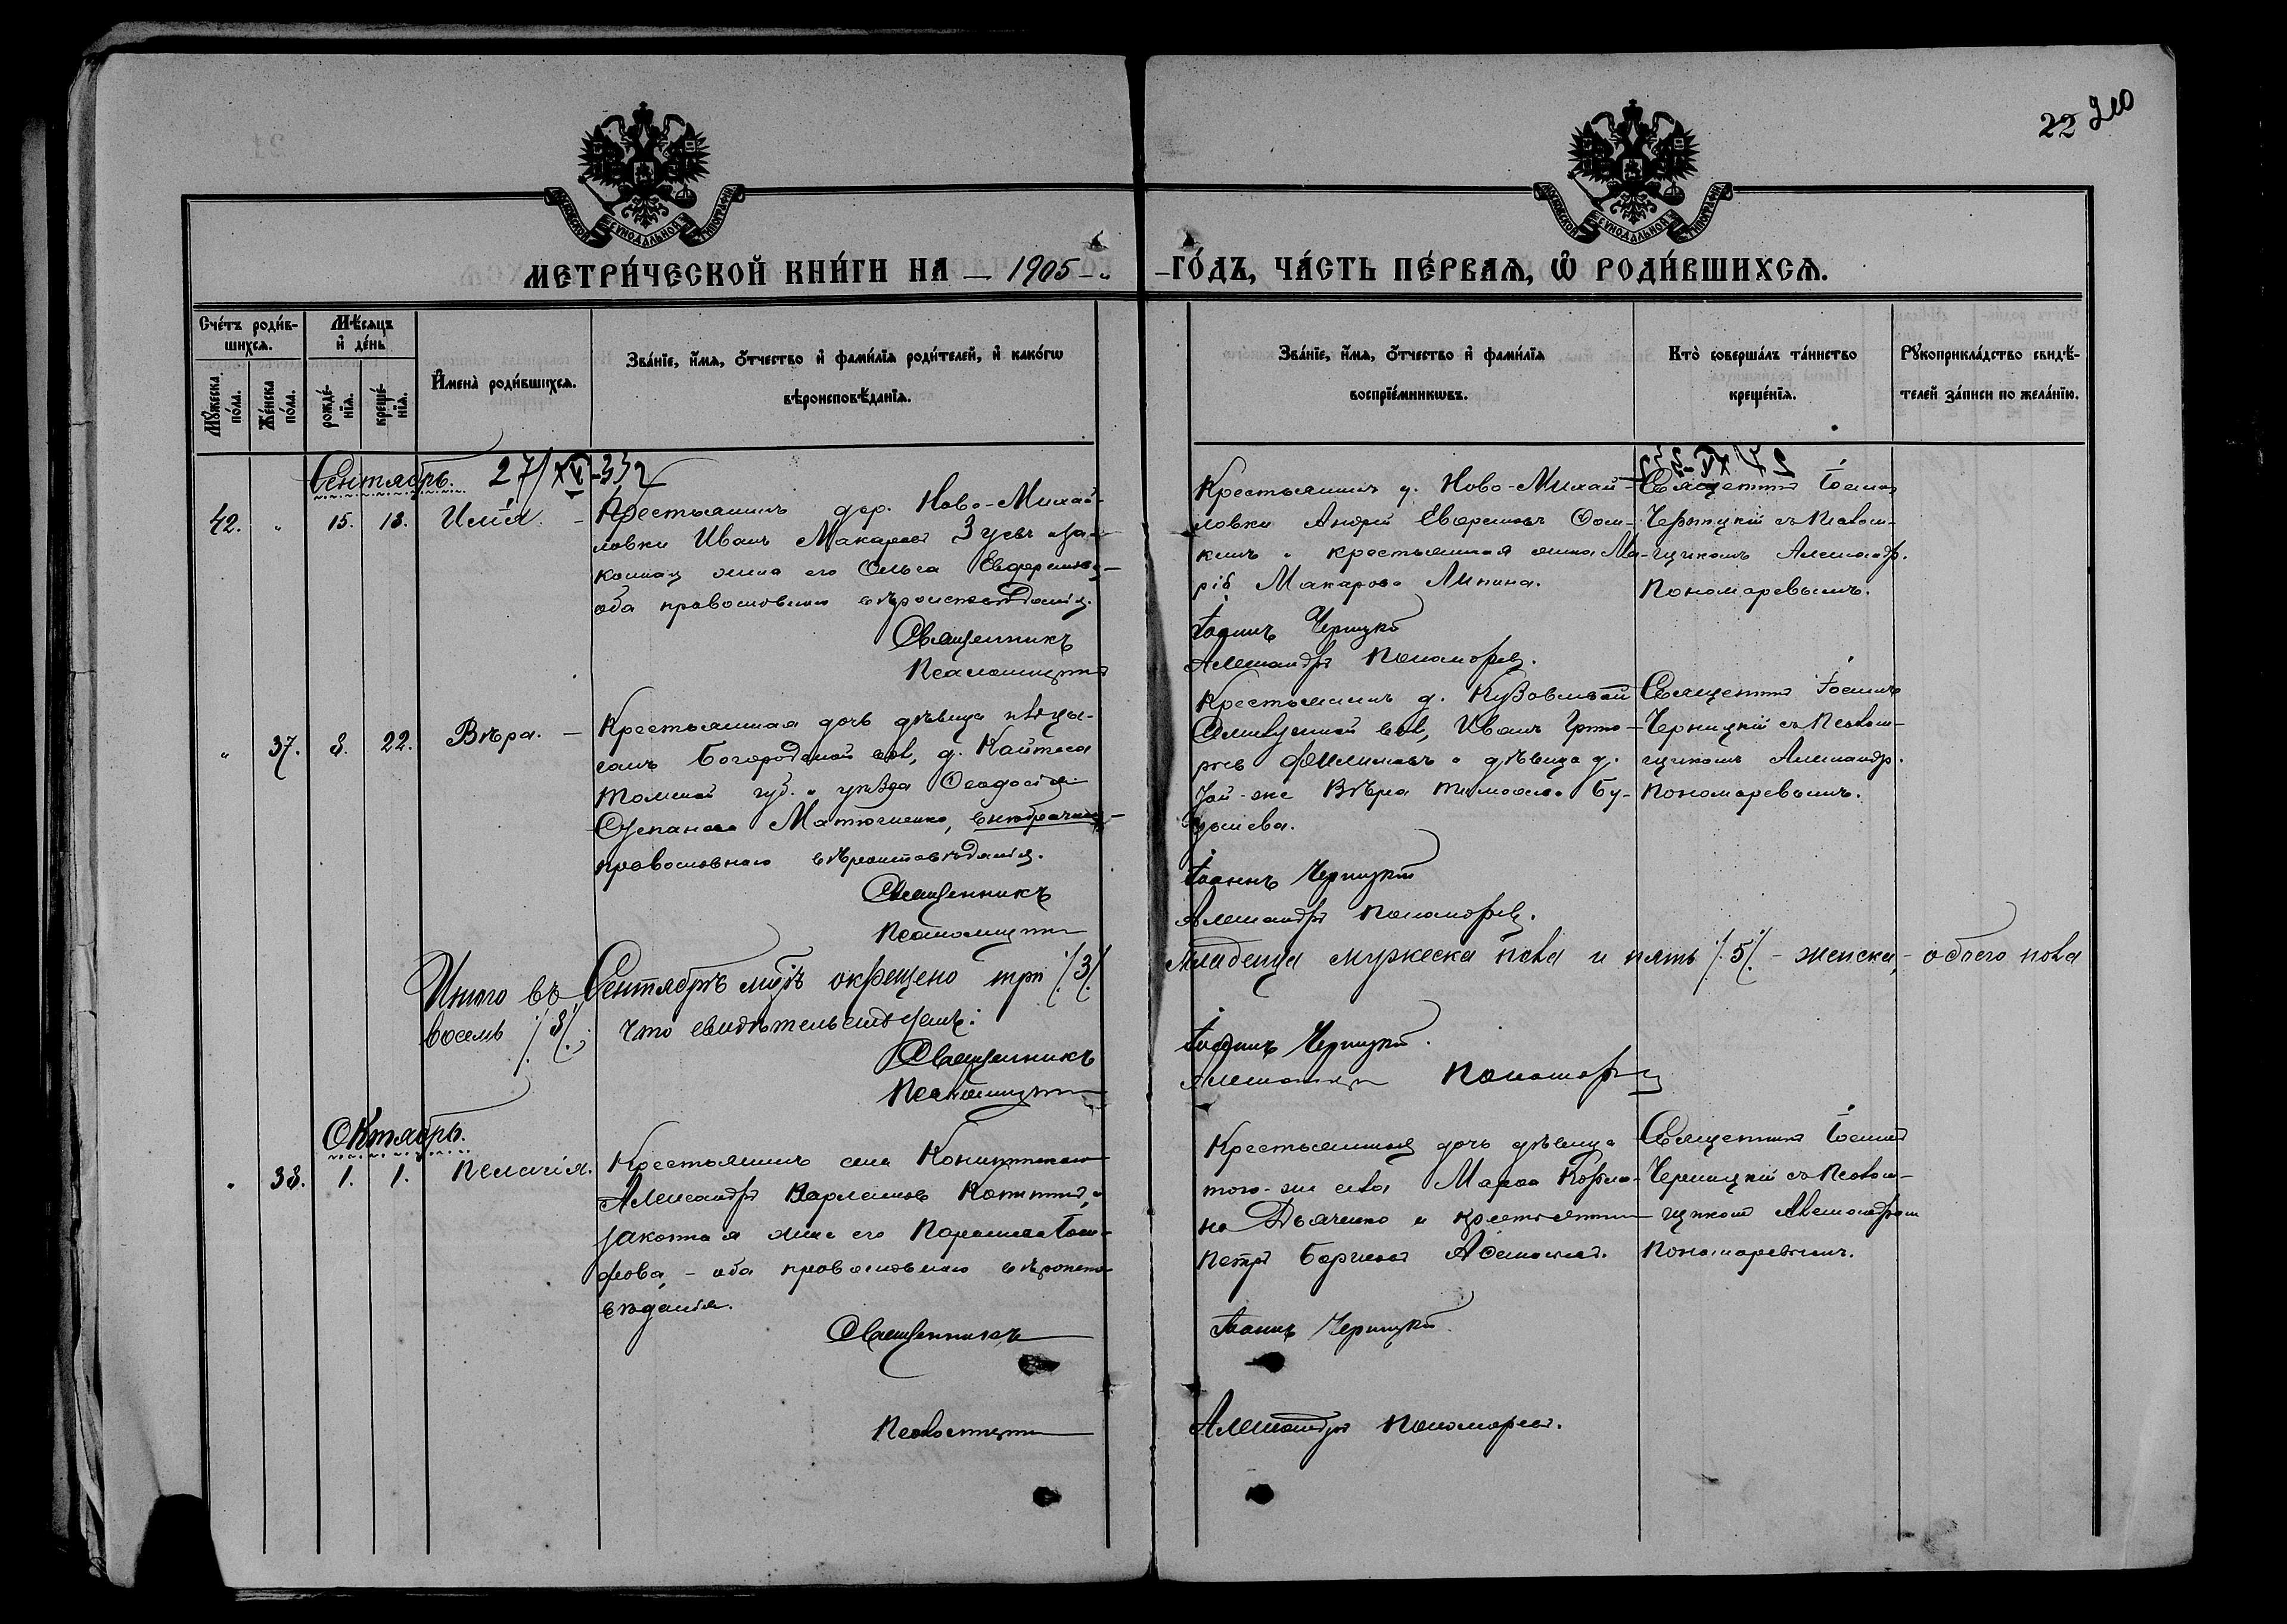 22 210
МОСКОВСКОЙ СѴНОДАЛЬНОЙ ТИПОГРАФІИ
МОСКОВСКОЙ СѴНОДАЛЬНОЙ ТИПОГРАФІИ
МЕТРИ́ЧЕСКОЙ КНИ́ГИ НА 1905 ГО́ДЪ, ЧА́СТЬ ПЕ́РВАѦ, Ѡ РОДИ́ВШИХСѦ.
Сче́тъ роди́в-
шихсѧ.
Мꙋ́жеска по́ла.
Же́нска по́ла.
Мѣ́сѧцъ
и҆ де́нь
рожде́-
нїѧ.
креще́-
нїѧ.
И҆мена̀ роди́вшихсѧ.
Зва́нїе, и҆́мѧ, ѻ҆́тчество и҆ фами́лїѧ роди́телей, и҆ како́гѡ
вѣроисповѣ́данїѧ.
Зва́нїе, и҆́мѧ, ѻ҆́тчество и҆ фами́лїѧ
воспрїе́мникѡвъ.
Кто̀ соверша́лъ та́инство
креще́нїѧ.
Рꙋкоприкла́дство свидѣ́-
телей за́писи по жела́нїю.
Сентябрь. 27/XV-332
42. " 15. 18. Илія.
Крестьянинъ дер. Ново-Михай-
ловки Иванъ Макаровъ Зуевъ и за-
конная жена его Ольга
оба православнаго вѣроисповѣданія.
Священникъ
Псаломщикъ
Крестьянинъ д. Ново-Михай-
ловки Андрей Фом-
кинъ и крестьянская жена Ма-
рія Макарова Липина.
Іоаннъ Черницкій
Александръ Пономаревъ.
Священникъ Іоаннъ
Черницкій съ псалом-
щикомъ Александр.
Пономаревымъ.
" 37. 8. 22. Вѣра.
Крестьянская дочь дѣвица
Богородской вол, д. Кайтеса
Томской губ. и уѣзда Ѳеодосія
Степанова Матюшенко, внѣбрачная
православнаго вѣроисповѣданія.
Священникъ
Псаломщикъ
Крестьянинъ д. Кузовлевой
вол, Иванъ Григо-
рьевъ Филимовъ и дѣвица д.
той-же Вѣра Тимофеева Бу-
Іоаннъ Черницкій
Александръ Пономаревъ.
Священникъ Іоаннъ
Черницкій съ псалом-
щикомъ Александр.
Пономаревымъ.
Итого въ Сентябрѣ м-цѣ окрещено три /3/ младенца мужеска пола и пять /5/ - женска, - обоего пола
восемь /8/, что свидѣтельствуемъ:
Священникъ Іоаннъ Черницкій.
Псаломщикъ Александръ Пономаревъ
Октябрь.
" 38. 1. 1. Пелагія.
Крестьянинъ села
Александръ Варламовъ и
законная жена его
- оба православнаго вѣроиспо-
вѣданія.
Священникъ
Псаломщикъ
Крестьянская дочь дѣвица
того-же села Марѳа
Дьяченко и крестьянинъ
Петръ Борисовъ
Іоаннъ Черницкій.
Александръ Пономаревъ.
Священникъ Іоаннъ
Черницкій съ псалом-
щикомъ Александромъ
Пономаревымъ.